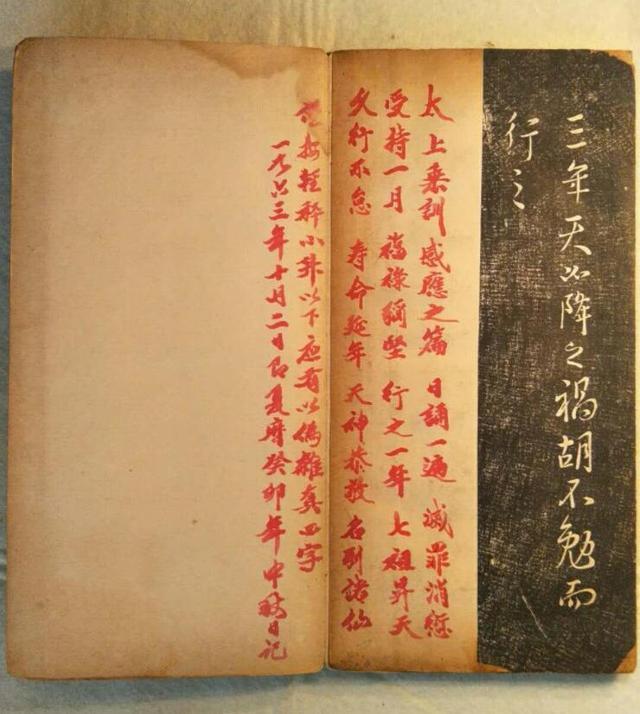 三年天必降之禍胡不勉而
行之
太上垂訓 感應之篇 日誦一遍 滅罪消愆
受持一月 福祿彌堅 行之一年 七祖昇天
久行不怠 壽命延年 天神恭敬 名列諸仙
按輕秤小升以下應有以偽雜真四字
一九六三年十月二日即夏曆癸卯年中秋日記